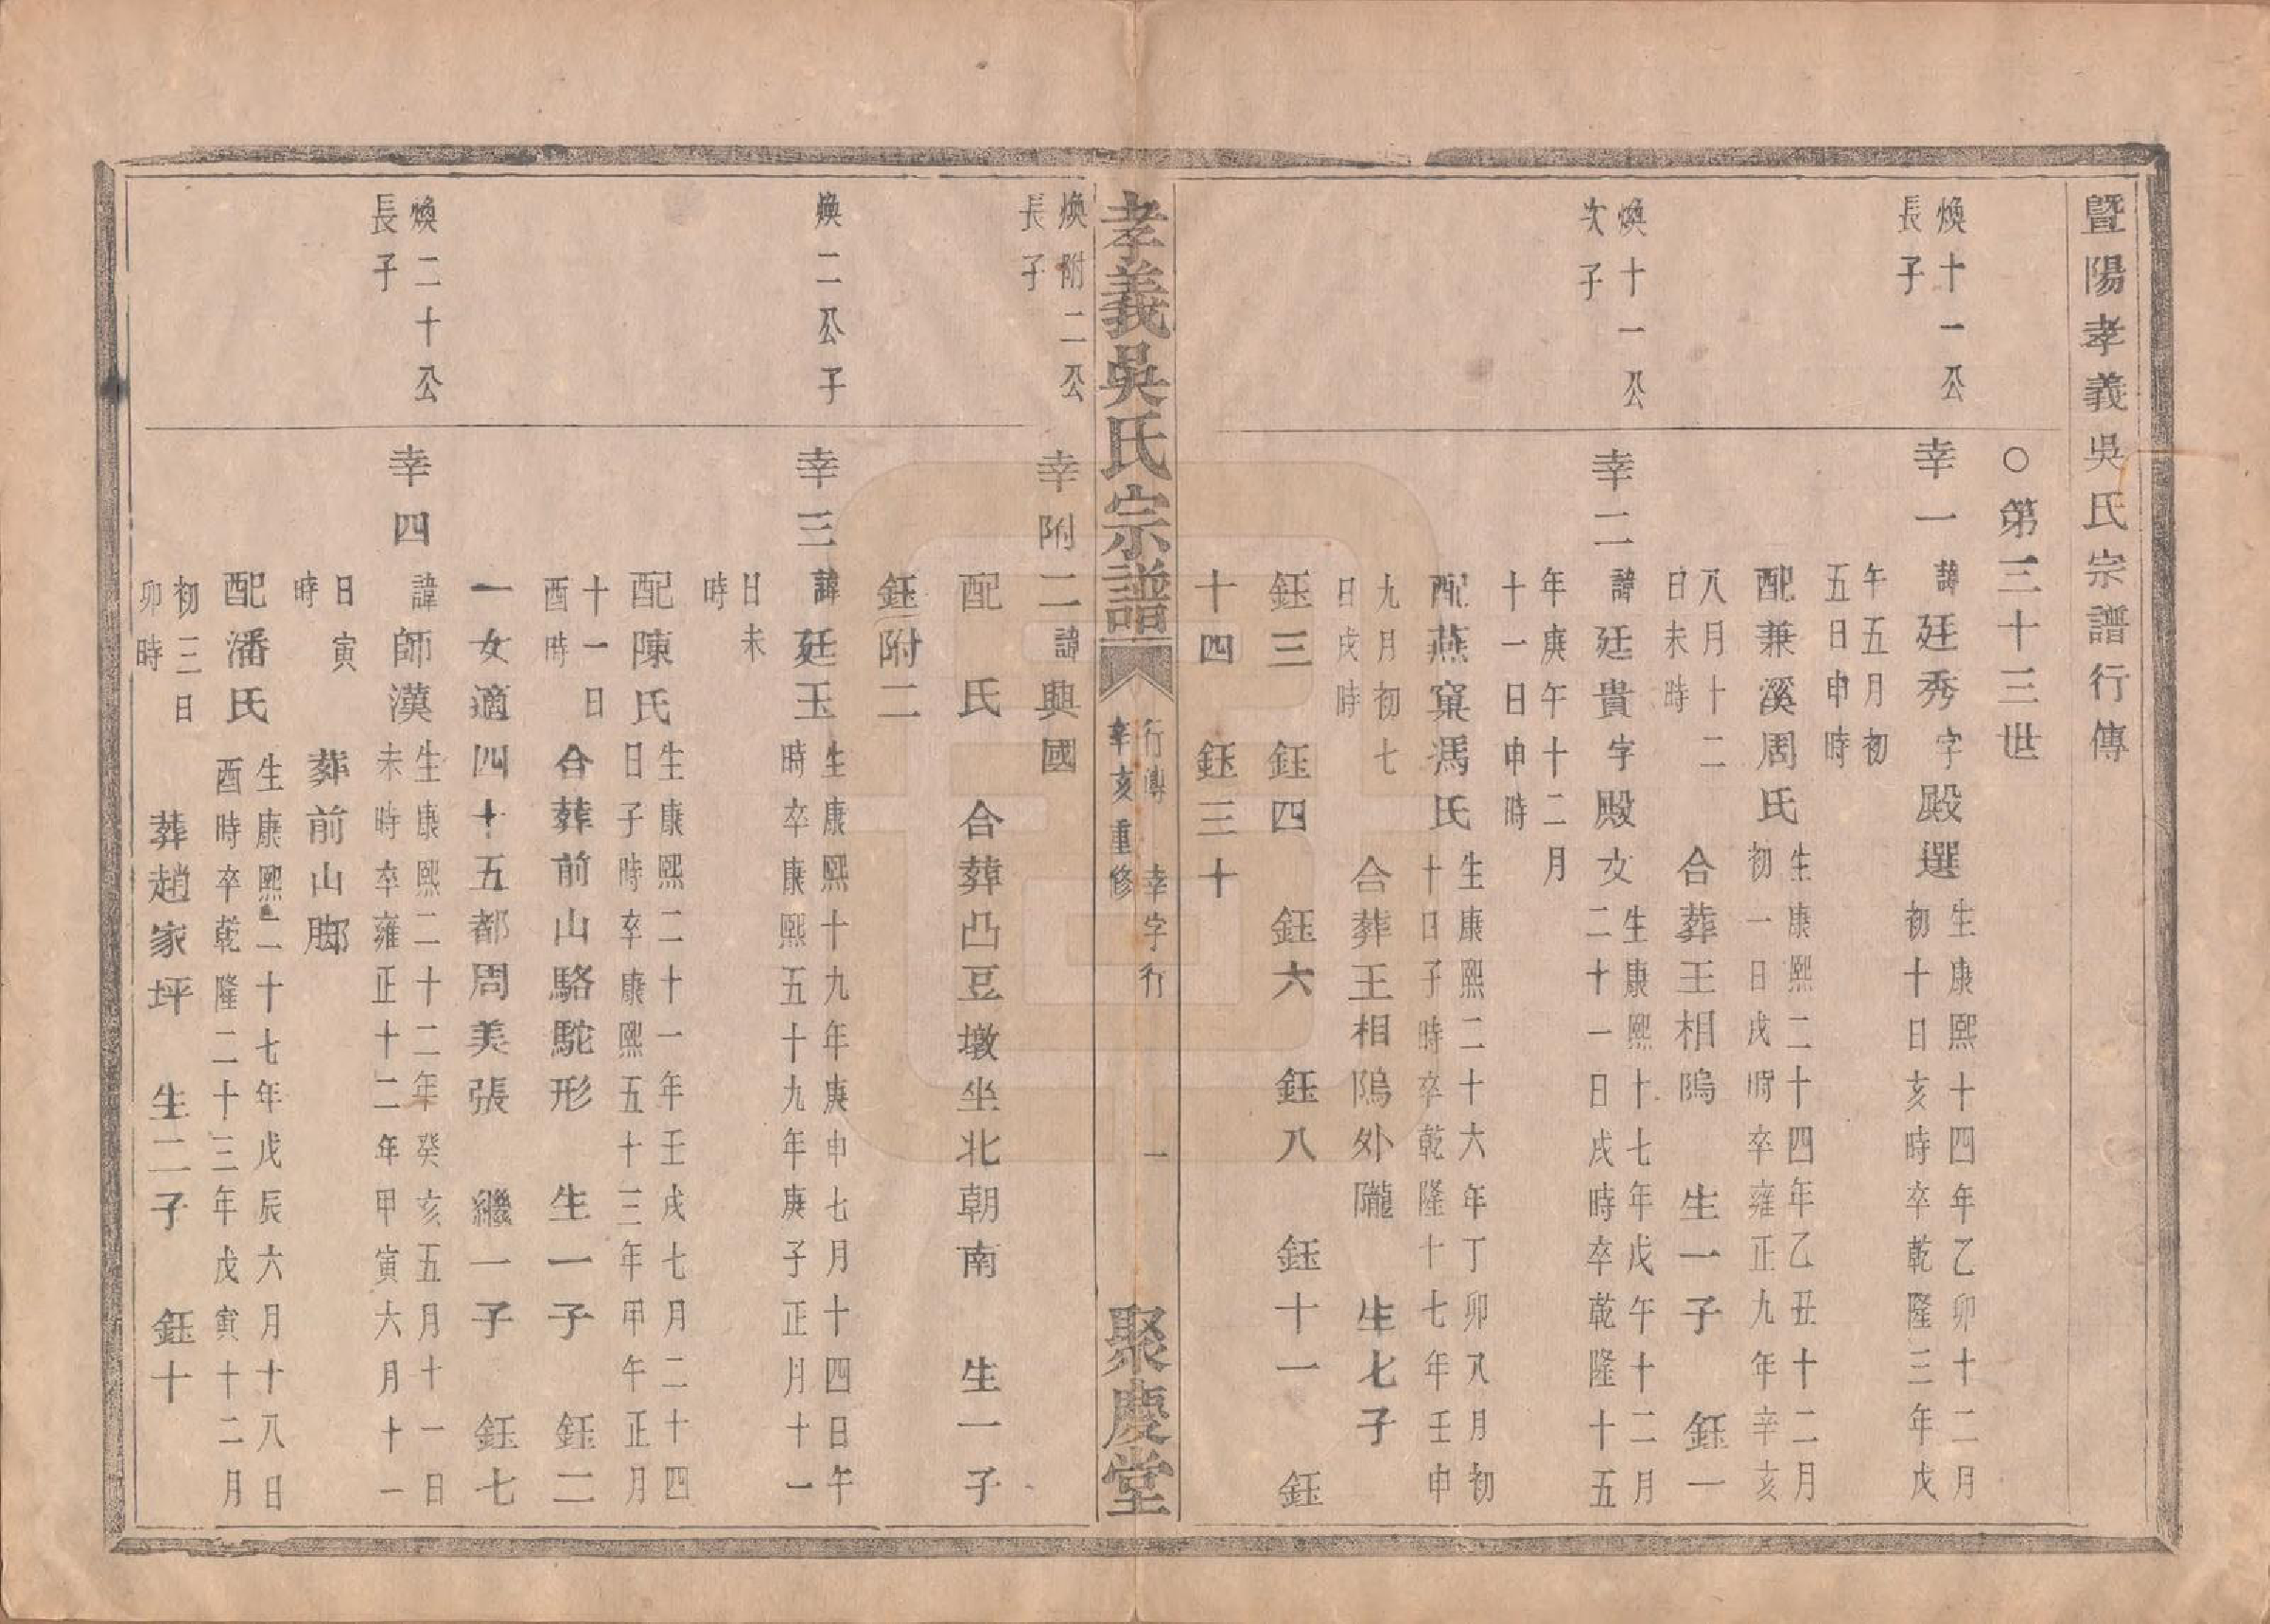 暨陽孝義吳氏宗譜行傳
○第三十三世
煥十一公
長子
幸一
諱廷秀字殿選
生康熙十四年乙卯十二月
初十日亥時卒乾隆三年戊
午五月初
五日申時
配兼溪周氏
生康熙二十四年乙丑十二月
初一日戌時卒雍正九年辛亥
八月十二
日未時
合葬王相隖 生一子 鈺一
煥十一公
次子
幸二
諱廷貴字殿文
生康熙十七年戊午十二月
二十一日戌時卒乾隆十五
年庚午十二月
十一日申時
配燕窠馮氏
生康熙二十六年丁卯八月初
十日子時卒乾隆十七年壬申
九月初七
日戌時
合葬王相隖外隴 生七子
鈺三 鈺四 鈺六 鈺八 鈺十一 鈺
十四 鈺三十
孝義吳氏宗譜
行傳 幸字行 一
辛亥重修
聚慶堂
煥附二公
長子
幸附二
諱興國
配 氏 合葬凸豆墩坐北朝南 生一子
鈺附二
煥二公子
幸三
諱廷玉
生康熙十九年庚申七月十四日午
時卒康熙五十九年庚子正月十一
日未
時
配陳氏
生康熙二十一年壬戌七月二十四
日子時卒康熙五十三年甲午正月
十一日
酉時
合葬前山駱駝形 生一子 鈺二
一女適四十五都周美張 繼一子 鈺七
煥二十公
長子
幸四
諱師漢
生康熙二十二年癸亥五月十一日
未時卒雍正十二年甲寅六月十一
日寅
時
葬前山腳
配潘氏
生康熙二十七年戊辰六月十八日
酉時卒乾隆二十三年戊寅十二月
初三日
卯時
葬趙家坪 生二子 鈺十